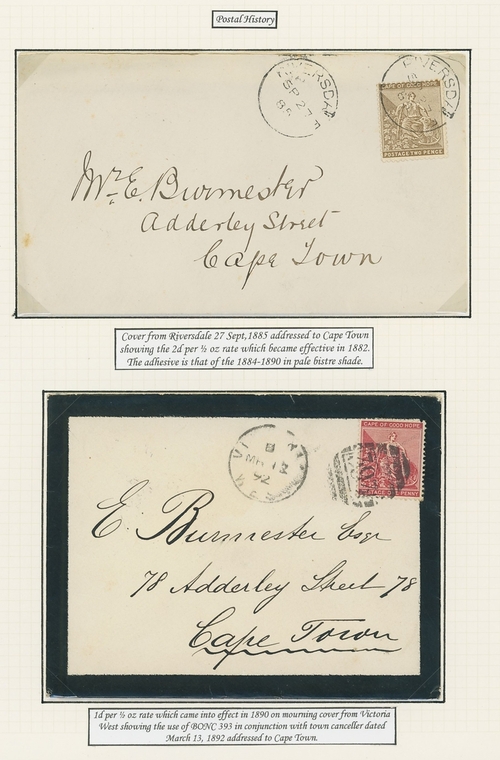 Postal History
RIVERSDALE
SP 27
RIVERSDALE
CAPE OF GOOD HOPE
POSTAGE TWO PENCE
Mr. E. Burmester
Adderley Street
Cape Town
Cover from Riversdale 27 Sept,1885 addressed to Cape Town
showing the 2d per ½ oz rate which became effective in 1882.
The adhesive is that of the 1884-1890 in pale bistre shade.
B
92
CAPE OF GOOD HOPE
POSTAGE ONE PENNY
E. Burmester Esqr
78 Adderley Street 78
Cape Town
1d per ½ oz rate which came into effect in 1890 on mourning cover from Victoria
West showing the use of BONC 393 in conjunction with town canceller dated
March 13, 1892 addressed to Cape Town.